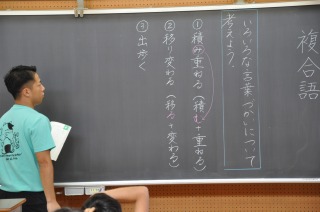 複合語
いろいろな言葉づかいについて
考えよう。
①積み重ねる（積む＋重ねる）
②移り変わる（移る＋変わる）
③出歩く